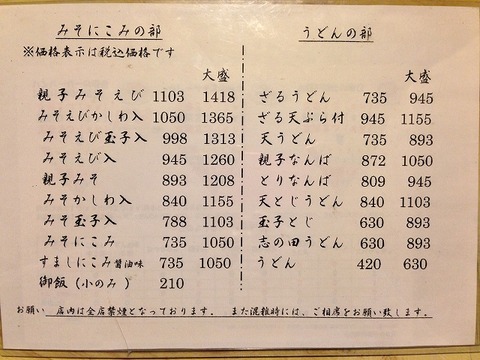 みそにこみの部
※価格表示は税込価格です
大盛
親子みそえび 1103 1418
みそえびかしわ入 1050 1365
みそえび玉子入 998 1313
みそえび入 945 1260
親子みそ 893 1208
みそかしわ入 840 1155
みそ玉子入 788 1103
みそにこみ 735 1050
すましにこみ 醤油味 735 1050
御飯 (小のみ) 210
うどんの部
大盛
ざるうどん 735 945
ざる天ぷら付 945 1155
天うどん 735 893
親子なんば 872 1050
とりなんば 809 945
天とじうどん 840 1103
玉子とじ 630 893
志の田うどん 630 893
うどん 420 630
お願い 店内は全店禁煙となっております。 また混雑時には、ご相席をお願い致します。